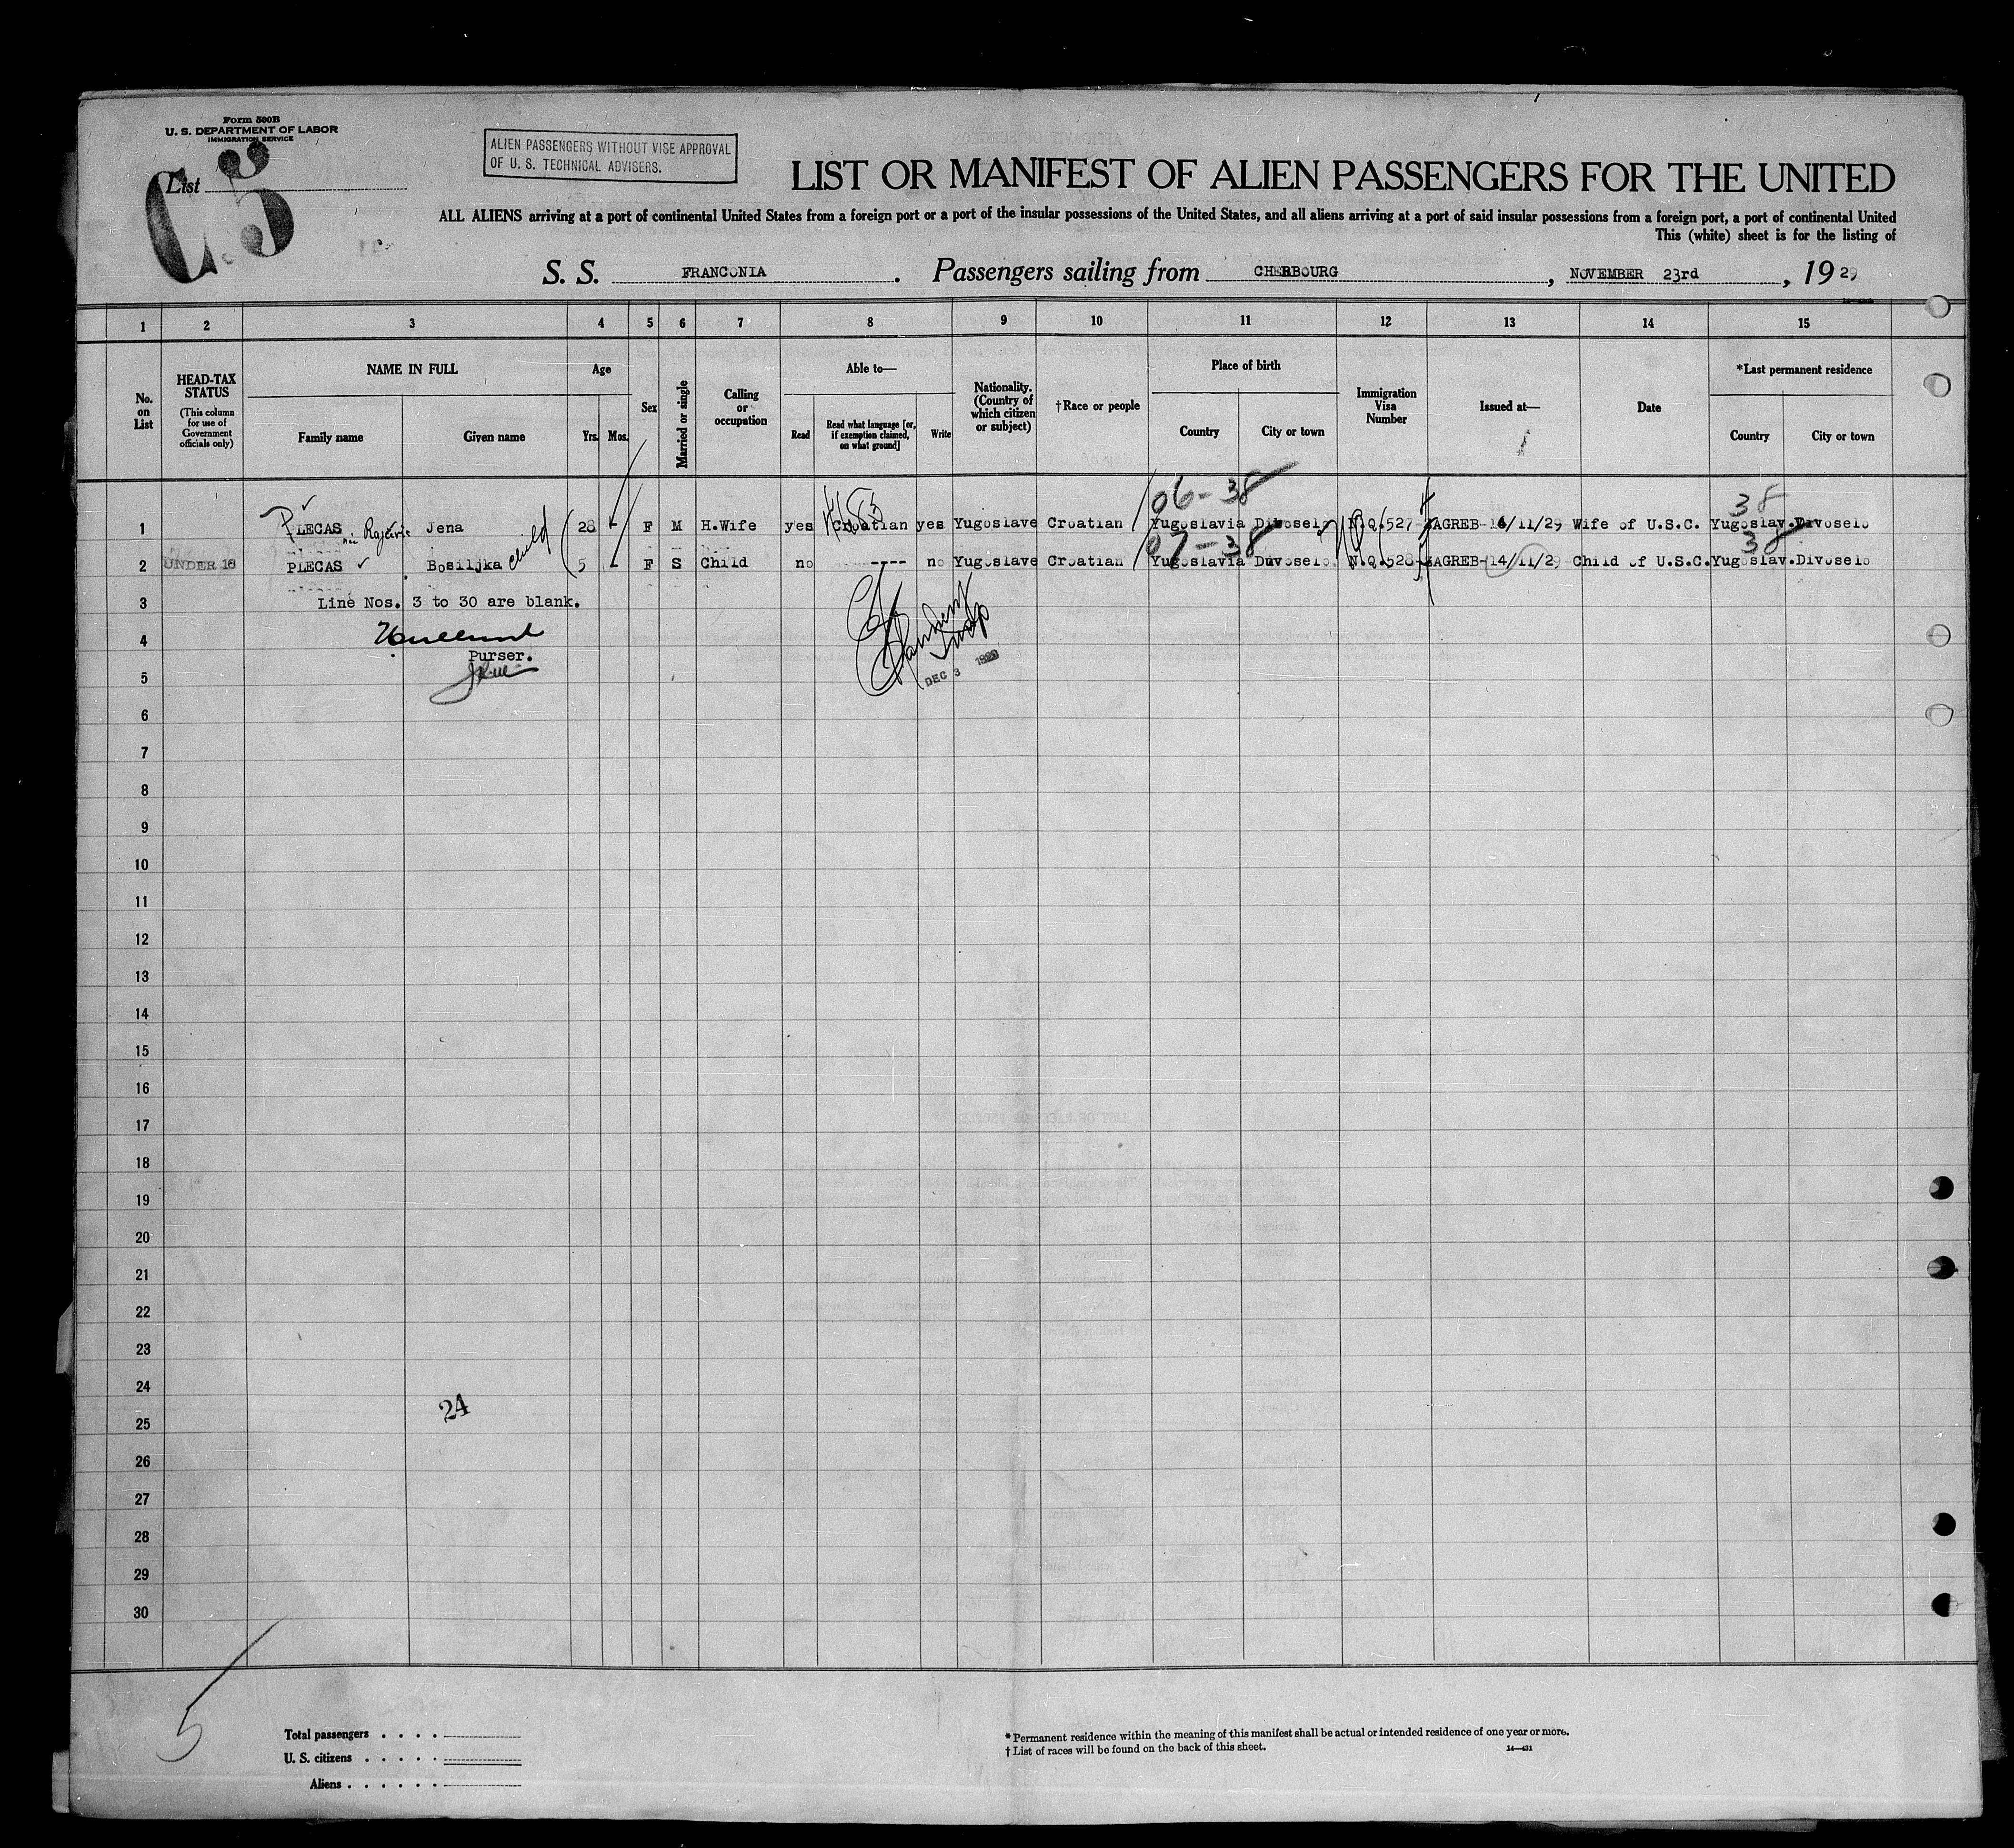 Form 500B
U. S. DEPARTMENT OF LABOR
IMMIGRATION SERVICE
List
C.5
ALIEN PASSENGERS WITHOUT VISE APPROVAL
OF U. S. TECHNICAL ADVISERS.
LIST OR MANIFEST OF ALIEN PASSENGERS FOR THE UNITED
ALL ALIENS arriving at a port of continental United States from a foreign port or a port of the insular possessions of the United States, and all aliens arriving at a port of said insular possessions from a foreign port, a port of continental United
This (white) sheet is for the listing of
S. S. FRANCONIA. Passengers sailing from CHERBOURG, NOVEMBER 23rd, 1929
1 2 3 4 5 6 7 8 9 10 11 12 13 14 15
No. on List
HEAD-TAX STATUS
(This column for use of Government officials only)
NAME IN FULL
Family name Given name
Age
Yrs. Mos.
Sex
Married or single
Calling or occupation
Able to—
Read
Read what language [or, if exemption claimed, on what ground]
Write
Nationality. (Country of which citizen or subject)
†Race or people
Place of birth
Country City or town
Immigration Visa Number
Issued at—
Date
*Last permanent residence
Country City or town
06-38 38
1 PLECAS Jena 28 - F M H.Wife yes Croatian yes Yugoslave Croatian Yugoslavia Divoselo N.Q.527 ZAGREB-14/11/29 Wife of U.S.C. Yugoslav. Divoselo
07-38 38
2 UNDER 16 PLECAS Bosiljka child 5 - F S Child no ---- no Yugoslave Croatian Yugoslavia Duvoselo. N.Q.528 ZAGREB-14/11/29 Child of U.S.C. Yugoslav. Divoselo
3 Line Nos. 3 to 30 are blank.
4
Purser.
5
DEC 3 1929
6
7
8
9
10
11
12
13
14
15
16
17
18
19
20
21
22
23
24
24
25
26
27
28
29
30
5
Total passengers . . . .
U. S. citizens . . . . .
Aliens . . . . . .
* Permanent residence within the meaning of this manifest shall be actual or intended residence of one year or more.
† List of races will be found on the back of this sheet.
14—431